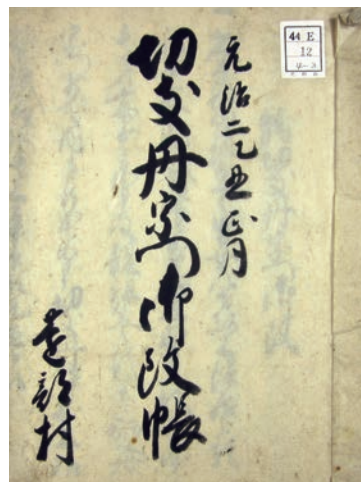 44 E
12
4-3
元治二乙丑正月
切支丹宗門御改帳
村